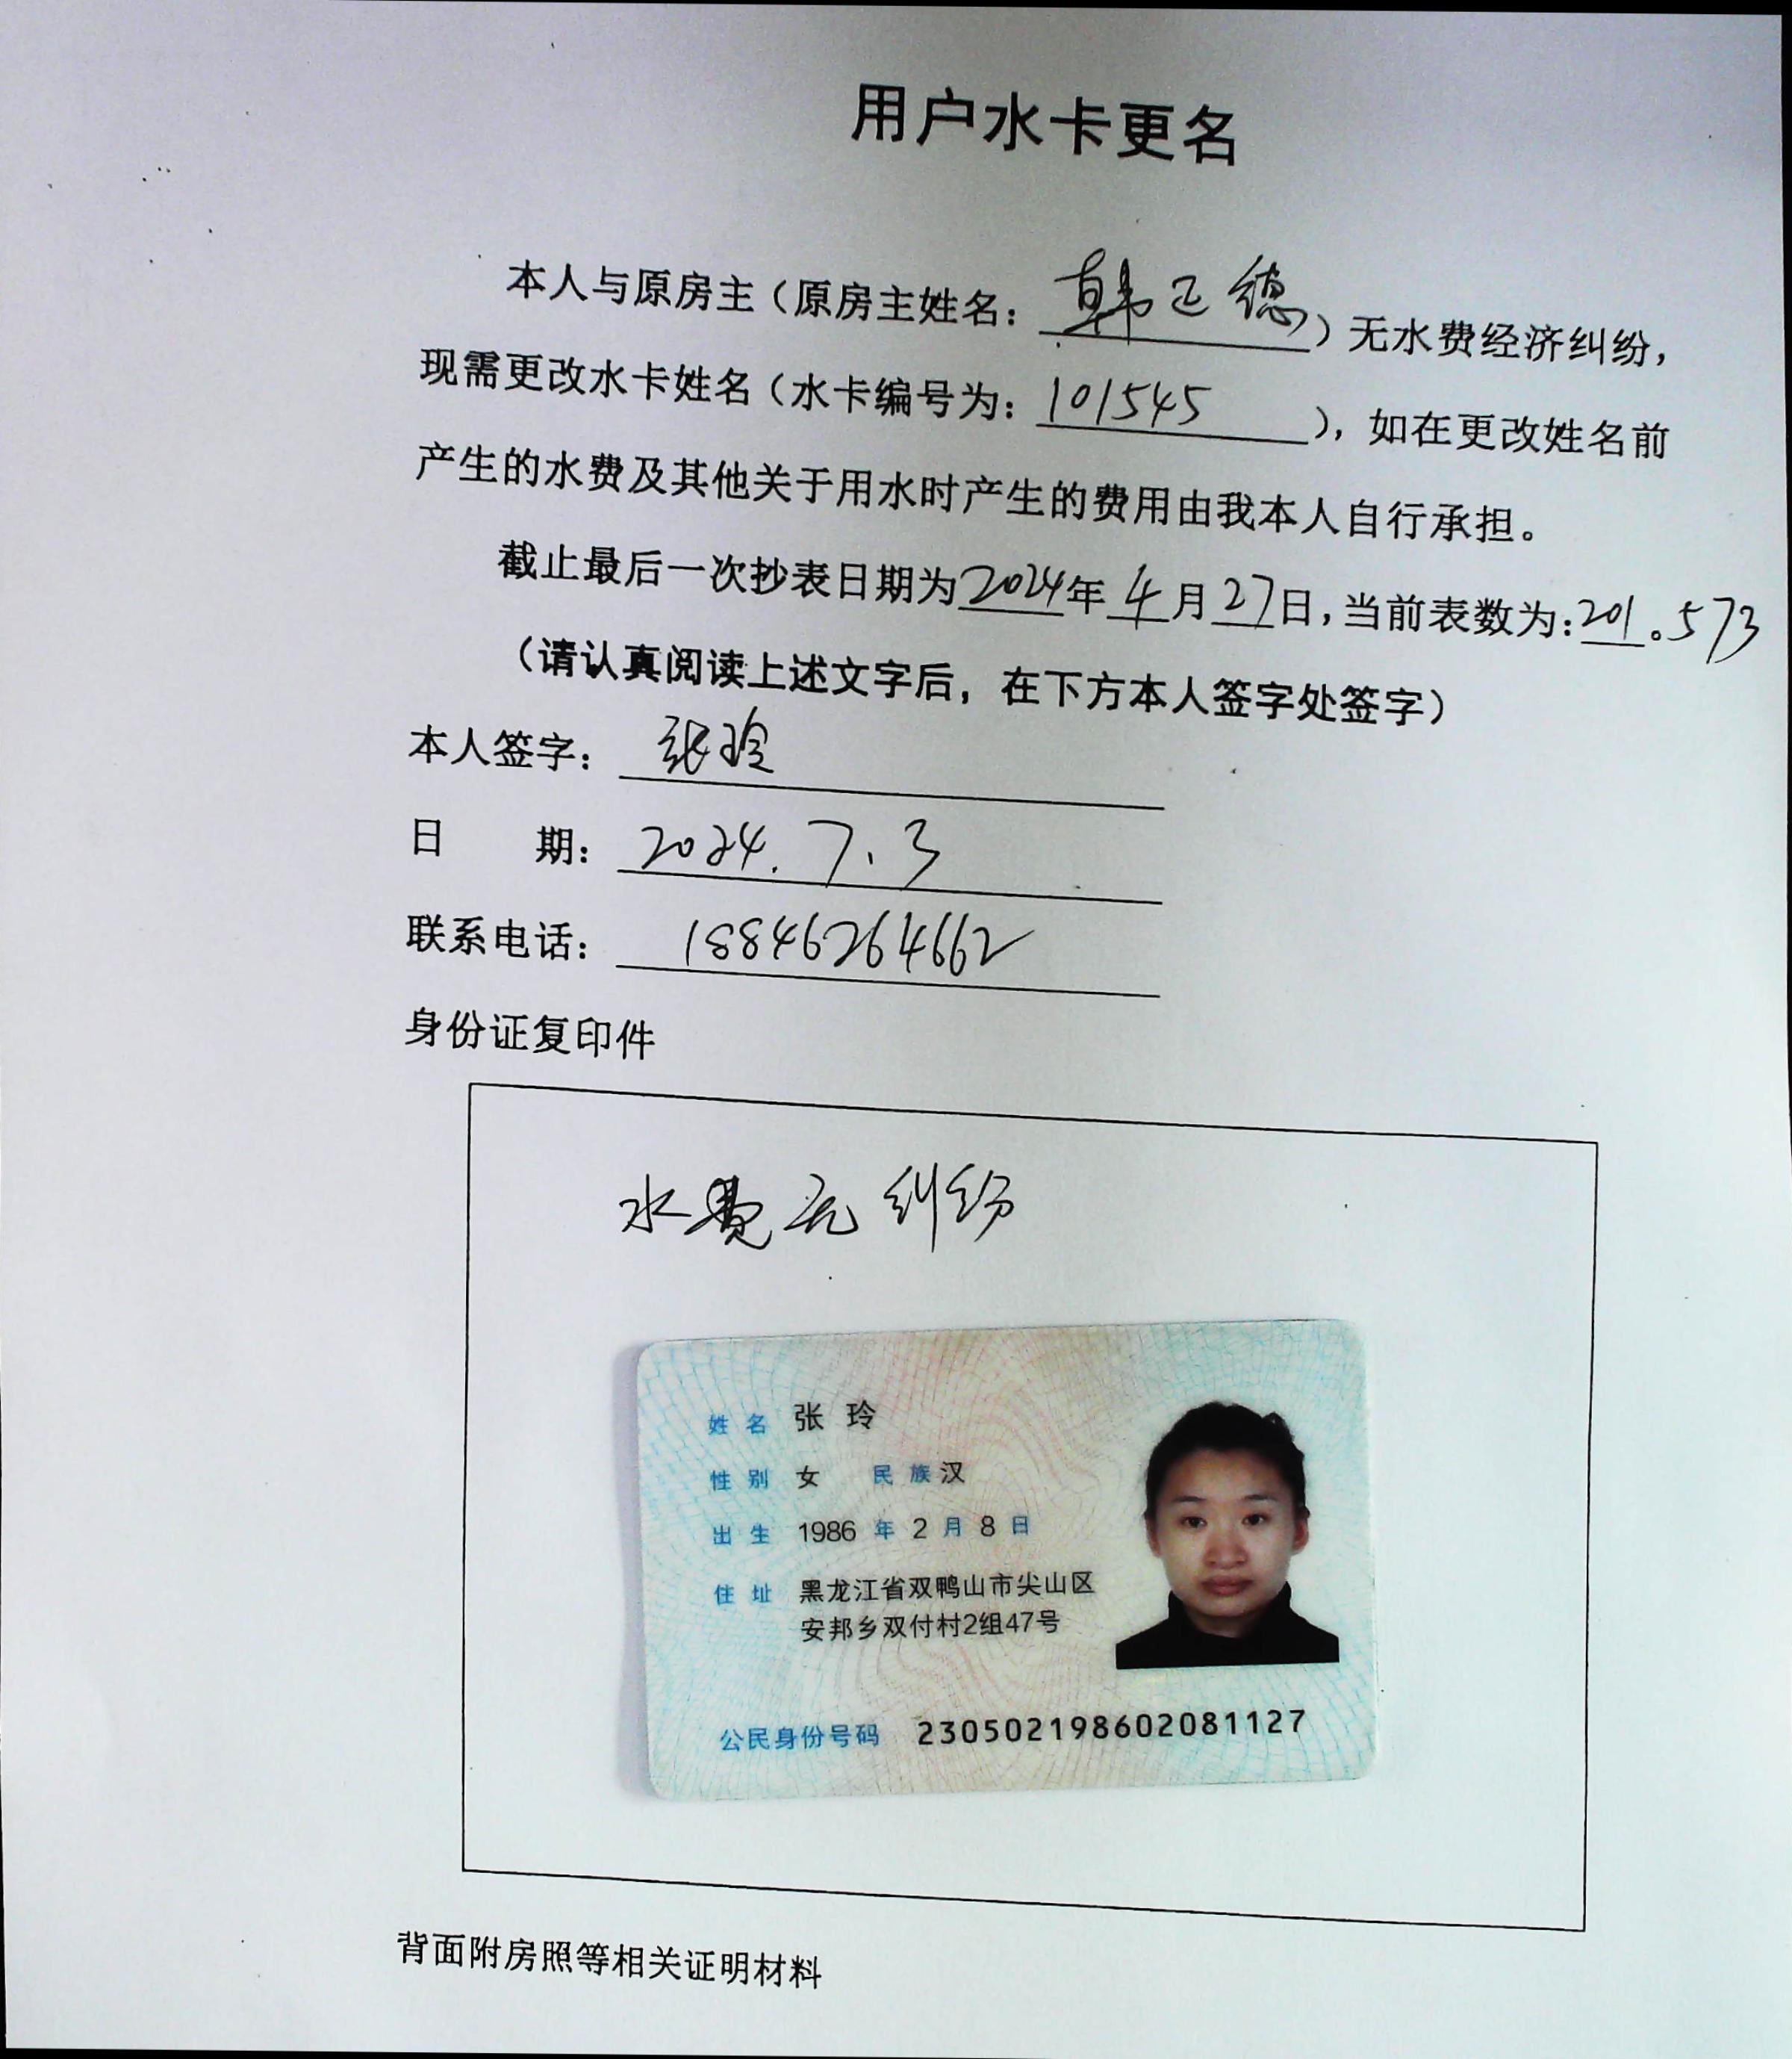 用户水卡更名
本人与原房主（原房主姓名：韩正德）无水费经济纠纷，
现需更改水卡姓名（水卡编号为：101545），如在更改姓名前
产生的水费及其他关于用水时产生的费用由我本人自行承担。
截止最后一次抄表日期为2024年4月27日，当前表数为：201.573
（请认真阅读上述文字后，在下方本人签字处签字）
本人签字：张玲
日 期：2024.7.3
联系电话：18846264662
身份证复印件
水费无纠纷
姓名 张玲
性别 女 民族 汉
出生 1986年2月8日
住址 黑龙江省双鸭山市尖山区
安邦乡双付村2组47号
公民身份号码 230502198602081127
背面附房照等相关证明材料